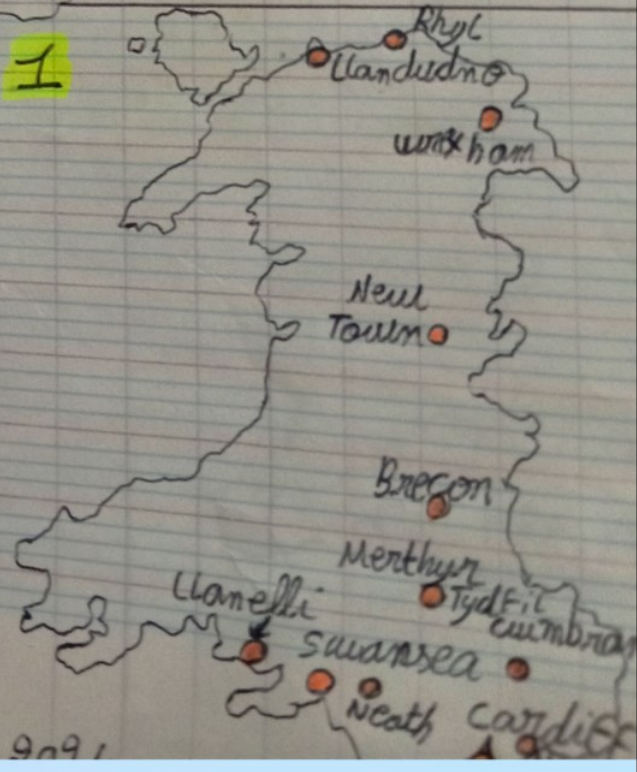 1
Rhyl
Llandudno
Wrexham
New
Town
Brecon
Merthyr
TydFil
Llanelli
Cwmbran
Swansea
Neath
Cardiff